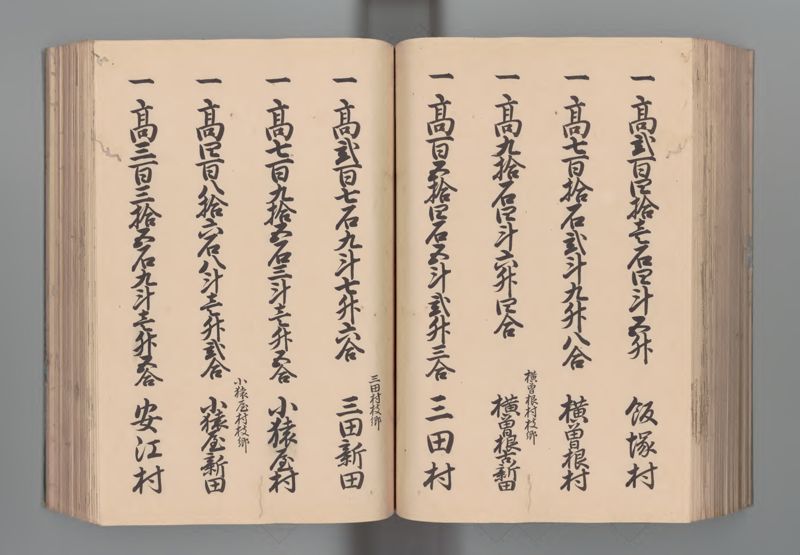 一高弐百四拾壱石四斗五升 飯塚村
一高七百拾石弐斗九升八合 横曽根村
横曽根村枝郷
一高九拾石四斗六升四合 横曽根古新田
一高百五拾四石五斗弐升三合 三田村
三田村枝郷
一高弐百七石九斗七升六合 三田新田
一高七百九拾五石三斗壱升五合 小猿屋村
小猿屋村枝郷
一高四百八拾六石八斗壱升弐合 小猿屋新田
一高三百三拾五石九斗壱升五合 安江村